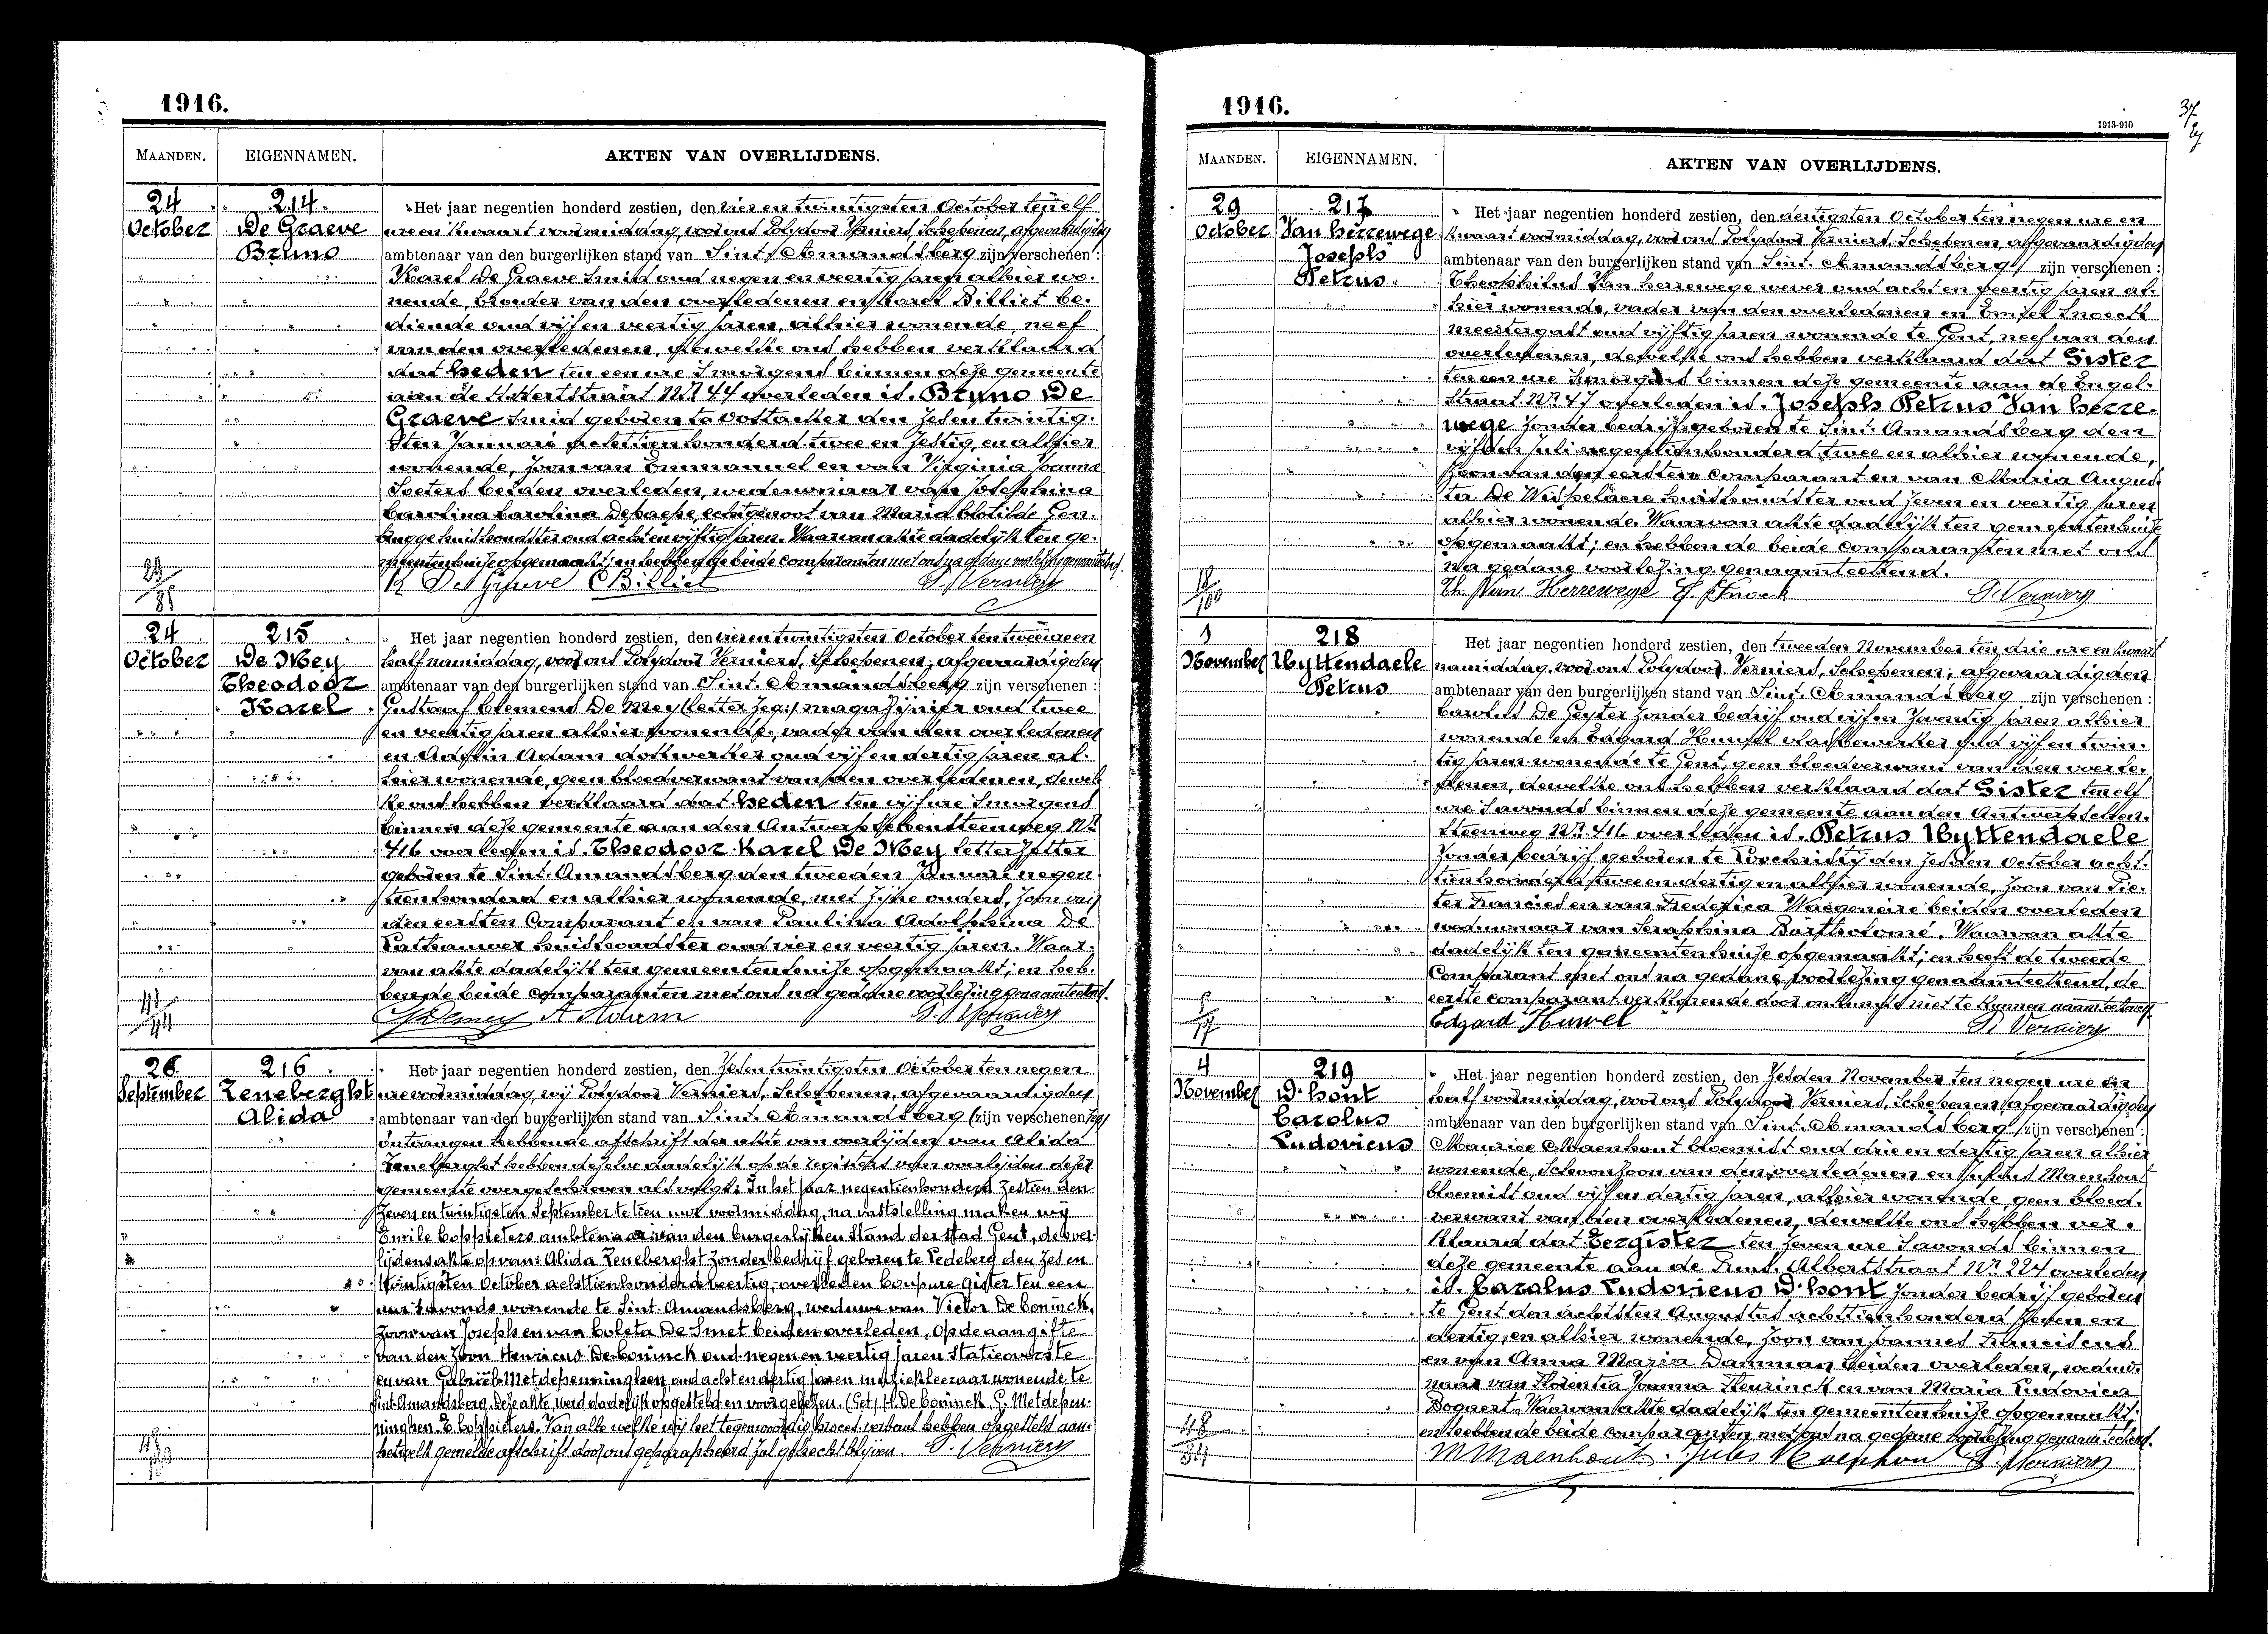 1916.
MAANDEN. EIGENNAMEN. AKTEN VAN OVERLIJDENS.
24 October
214
De Graeve
Bruno
Het jaar negentien honderd zestien, den vier en twintigsten October ten elf
ure en kwaart voormiddag, voor ons Polydoor Verniers, Schepenen, afgevaardigden
ambtenaar van den burgerlijken stand van Sint Amandsberg zijn verschenen :
Karel De Graeve smid oud negen en veertig jaren alhier wo-
nende, broeder van den overledenen en Karel Billiet be-
diende oud vijf en veertig jaren, alhier wonende, neef
van den overledenen, dewelke ons hebben verklaard
dat heden ten een ure smorgens binnen deze gemeente
aan de straat Nr 44 overleden is. Bruno De
Graeve smid geboren te Oostacker den zes en twintig-
sten Januari achttien honderd twee en zestig, en alhier
wonende, zoon van Emmanuel en van Virginia Joanna
Soeters beiden overleden, weduwnaar van Josephina
Carolina Carolina Depaepe, echtgenoot van Maria Clotilde Gen-
brugge huishoudster oud acht en vijftig jaren. Waarvan akte dadelijk ten ge-
meentenhuize opgemaakt; en hebben de beide comparanten met ons na gedane voorlezing genaamteekend.
K De Graeve C Billiet P. Verniers
24 October
215
De Mey
Theodoor
Karel
Het jaar negentien honderd zestien, den vier en twintigsten October ten twee ure en
half namiddag, voor ons Polydoor Verniers, Schepenen, afgevaardigden
ambtenaar van den burgerlijken stand van Sint Amandsberg zijn verschenen :
Gustaaf Clemens De Mey magazijnier oud twee
en veertig jaren alhier wonende, vader van den overledenen
en Adam dokwerker oud vijf en dertig jaren al-
hier wonende, geen bloedverwant van den overledenen, dewel-
ke ons hebben verklaard dat heden ten vijf ure smorgens
binnen deze gemeente aan den Antwerpschensteenweg Nr
416 overleden is. Theodoor Karel De Mey letterzetter
geboren te Sint Amandsberg den tweeden Januari negen-
tien honderd en alhier wonende, met zijne ouders, zoon van
den eersten Comparant en van Paulina Adolphina De
huishoudster oud vier en veertig jaren. Waar-
van akte dadelijk ten gemeentenhuize opgemaakt; en heb-
ben de beide comparanten met ons na gedane voorlezing genaamteekend.
G Demey A Adam P. Verniers
26 September
216
Zeneberghst
Alida
Het jaar negentien honderd zestien, den zes en twintigsten October ten negen
ure voormiddag, wij Polydoor Verniers, Schepenen, afgevaardigden
ambtenaar van den burgerlijken stand van Sint Amandsberg (zijn verschenen
ontvangen hebbende afschrift der akte van overlijden van Alida
Zeneberghst hebben dezelve dadelijk op de registers van overlijden dezer
gemeente overgeschreven als volgt: In het jaar negentienhonderd zestien den
zeven en twintigsten September te tien uur voormiddag, na vaststelling maken wij
Emile Coppieters ambtenaar van den burgerlijken Stand der stad Gent, de over-
lijdensakte op van: Alida Zeneberghst zonder bedrijf geboren te Ledeberg den zes en
twintigsten October achttienhonderd veertig, overleden Coupure gister ten een
uur savonds wonende te Sint-Amandsberg, weduwe van Victor De Coninck,
zoon van Joseph en van Coleta De Smet beiden overleden, op de aangifte
van den zoon Henricus De Coninck oud negen en veertig jaren Statieoverste
en van Gabriël Metdepenninghen, oud acht en dertig jaren muziekleeraar wonende te
Sint Amandsberg. Deze akte werd dadelijk opgesteld en voorgelezen. (Get) H. De Coninck. G. Metdepen-
ninghen. E. Coppieters. Van alle welke wij het tegenwoordig proces-verbaal hebben opgesteld aan
hetwelk gemelde afschrift door ons geparapheerd zal gehecht blijven. P. Verniers
1916.
1913-910
37
MAANDEN. EIGENNAMEN. AKTEN VAN OVERLIJDENS.
29 October
217
Van Herrewege
Joseph
Petrus
Het jaar negentien honderd zestien, den dertigsten October ten negen ure en
kwaart voormiddag, voor ons Polydoor Verniers, Schepenen, afgevaardigden
ambtenaar van den burgerlijken stand van Sint Amandsberg zijn verschenen :
Theophilus Van Herrewege wever oud acht en veertig jaren al-
hier wonende, vader van den overledenen en Snoeck
meestergast oud vijftig jaren wonende te Gent, neef van den
overledenen, dewelke ons hebben verklaard dat Gister
ten een ure smorgens binnen deze gemeente aan de Engel-
straat Nr 47 overleden is. Joseph Petrus Van Herre-
wege zonder bedrijf geboren te Sint Amandsberg den
vijfden Juli negentien honderd twee en alhier wonende,
zoon van den eersten comparant en van Maria Augus-
ta De Wispelaere huishoudster oud zeven en veertig jaren
alhier wonende. Waarvan akte dadelijk ten gemeentenhuize
opgemaakt; en hebben de beide comparanten met ons
na gedane voorlezing genaamteekend.
Th Van Herrewege Snoeck P. Verniers
1 November
218
Uyttendaele
Petrus
Het jaar negentien honderd zestien, den tweeden November ten drie ure en kwart
namiddag, voor ons Polydoor Verniers, Schepenen, afgevaardigden
ambtenaar van den burgerlijken stand van Sint Amandsberg zijn verschenen :
De Geyter zonder bedrijf oud vijf en zeventig jaren alhier
wonende en Edgard Huwel vlasbewerker oud vijf en twin-
tig jaren wonende te Gent, geen bloedverwant van den overle-
denen, dewelke ons hebben verklaard dat Gister ten elf
ure savonds binnen deze gemeente aan den Antwerpschen-
steenweg Nr 416 overleden is. Petrus Uyttendaele
zonder bedrijf geboren te Loochristij den zesden October acht-
tien honderd twee en dertig en alhier wonende, zoon van Pie-
ter Francies en van Frederica Waegeneire beiden overleden
weduwnaar van Seraphina Bartholomé. Waarvan akte
dadelijk ten gemeentenhuize opgemaakt; en heeft de tweede
Comparant met ons na gedane voorlezing genaamteekend, de
eerste comparant verklarende door onkunde niet te kunnen naamteekenen.
Edgard Huwel P. Verniers
4 November
219
D'hont
Carolus
Ludovicus
Het jaar negentien honderd zestien, den zesden November ten negen ure en
half voormiddag, voor ons Polydoor Verniers, Schepenen, afgevaardigden
ambtenaar van den burgerlijken stand van Sint Amandsberg zijn verschenen :
Maurice Maenhout bloemist oud drie en dertig jaren alhier
wonende, schoonzoon van den overledenen en Julius Maenhout
bloemist oud vijf en dertig jaren, alhier wonende, geen bloed-
verwant van den overledenen, dewelke ons hebben ver-
klaard dat Eergister ten zeven ure savonds binnen
deze gemeente aan de Prins Albertstraat Nr 224 overleden
is. Carolus Ludovicus D'hont zonder bedrijf geboren
te Gent den achtsten Augustus achttien honderd zeven en
dertig, en alhier wonende, zoon van Joannes Franciscus
en van Anna Maria Damman beiden overleden, weduw-
naar van Florentia Joanna Steurinck en van Maria Ludovica
Bogaert. Waarvan akte dadelijk ten gemeentenhuize opgemaakt;
en hebben de beide comparanten met ons na gedane voorlezing genaamteekend.
M Maenhout. Jules Maenhout P. Verniers